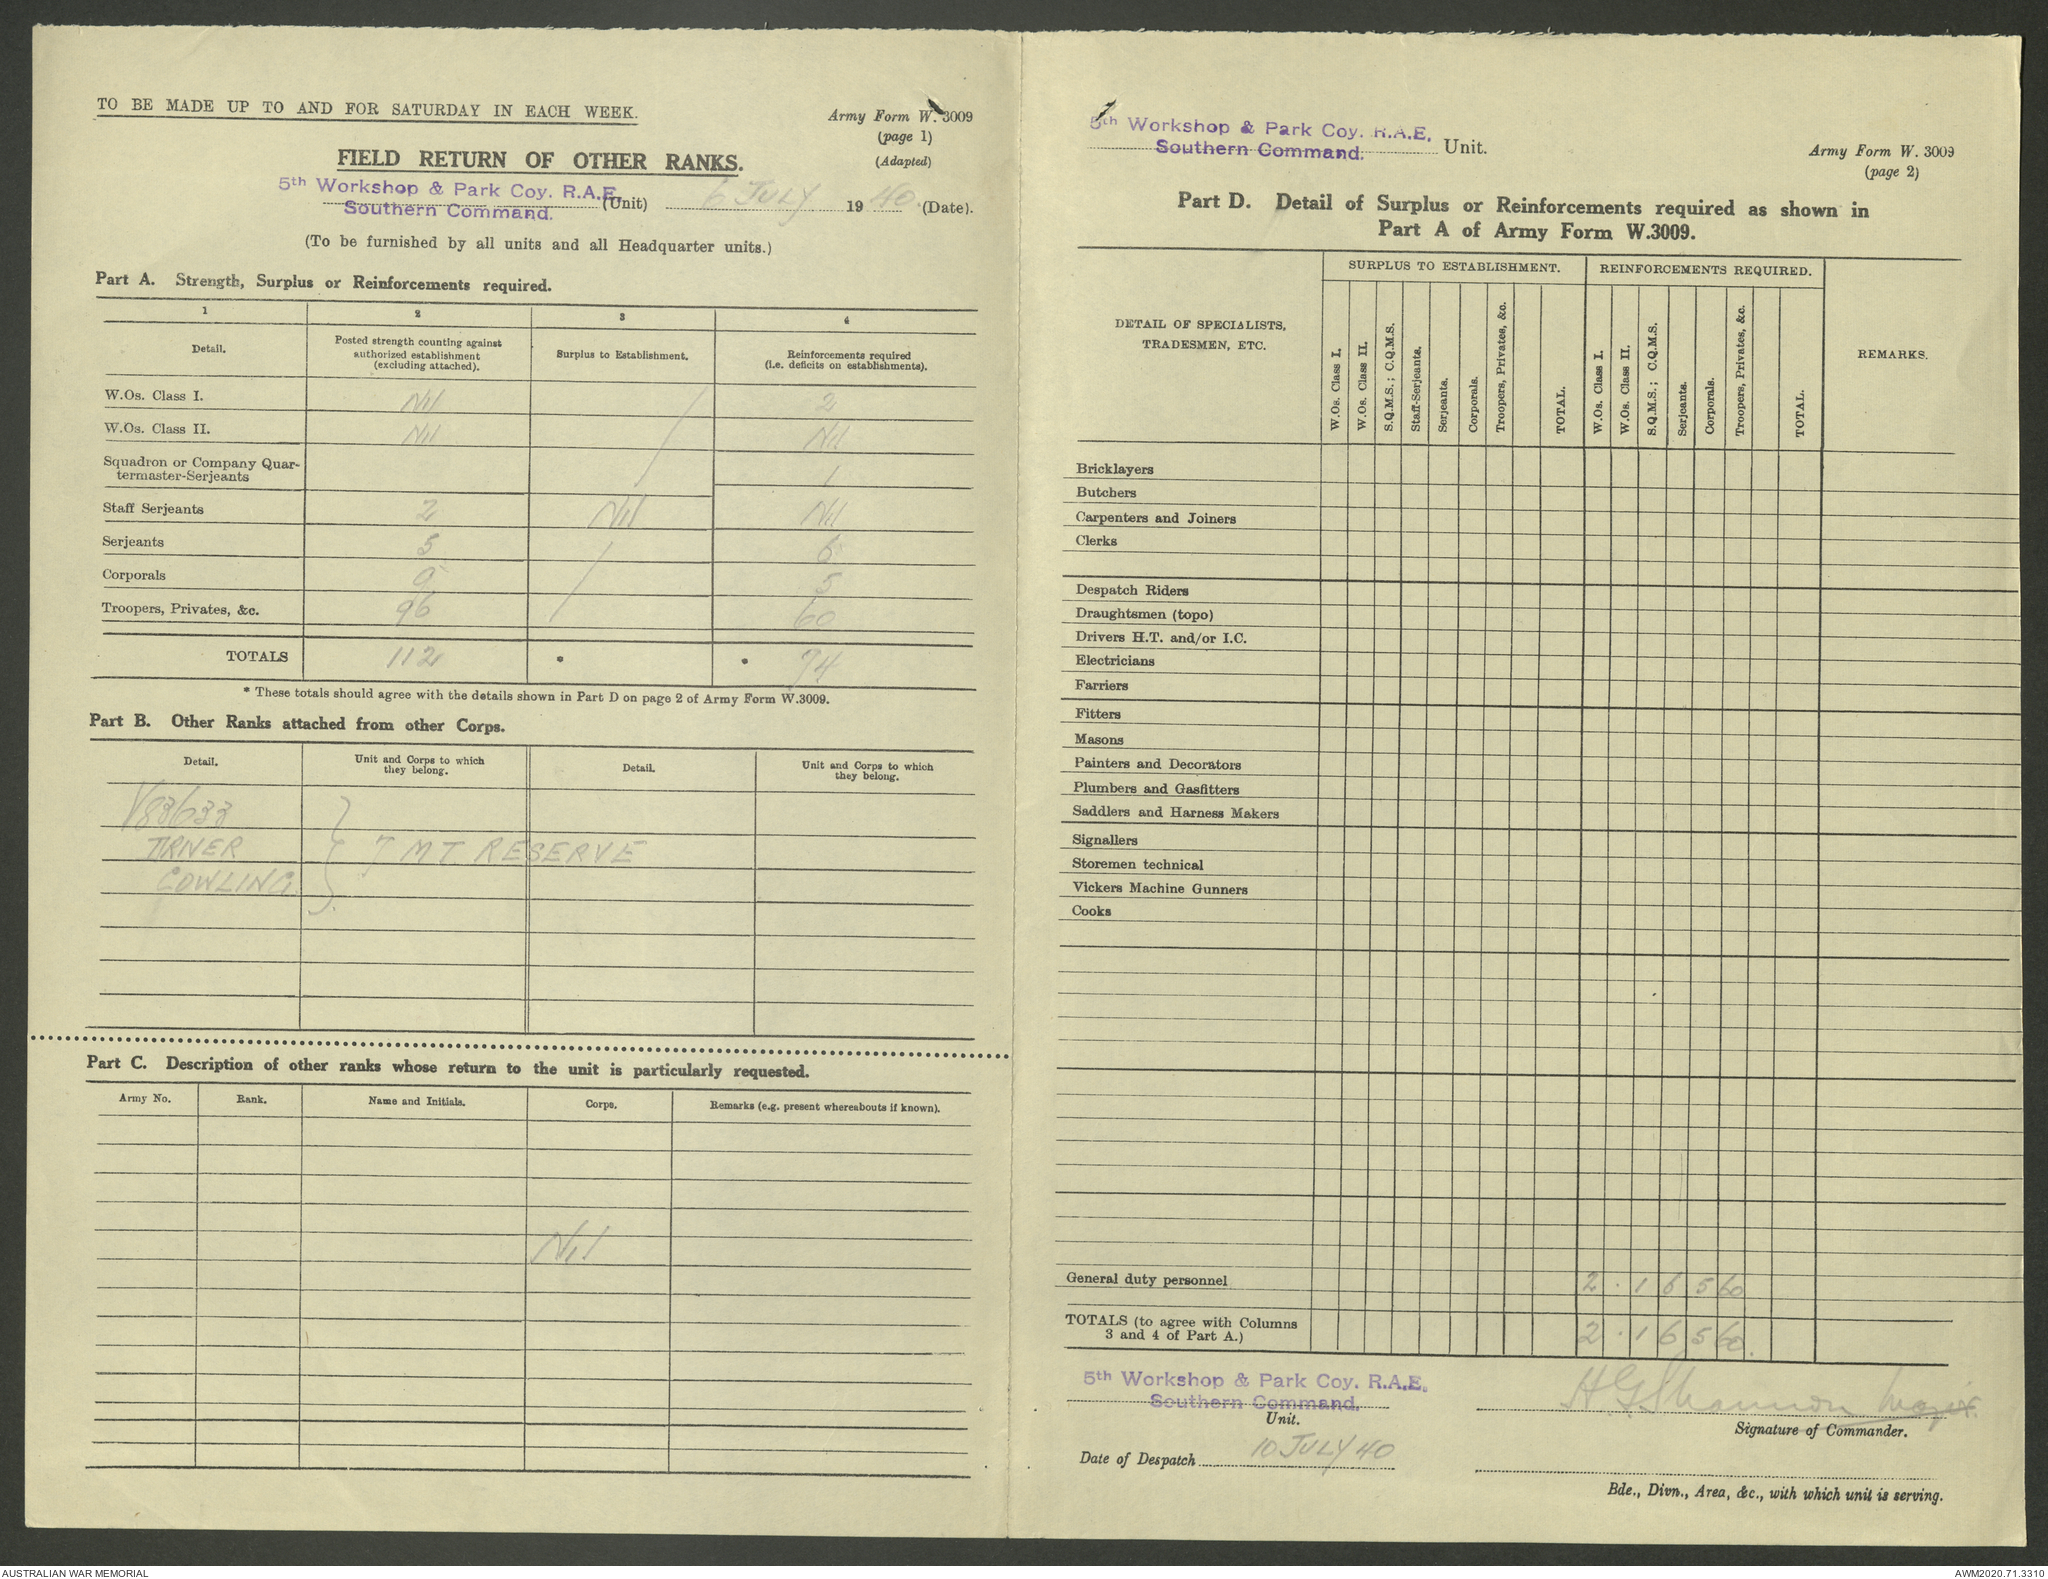 TO BE MADE UP TO AND FOR SATURDAY IN EACH WEEK.
Army Form W. 3009
(page 1)
(Adapted)
FIELD RETURN OF OTHER RANKS.
5th Workshop & Park Coy. R.A.E.
Southern Command.
(Unit) 6 JULY 1940. (Date).
(To be furnished by all units and all Headquarter units.)
Part A. Strength, Surplus or Reinforcements required.
1 2 3 4
Detail. Posted strength counting against authorized establishment (excluding attached). Surplus to Establishment. Reinforcements required (i.e. deficits on establishments).
W.Os. Class I. Nil / 2
W.Os. Class II. Nil / Nil
Squadron or Company Quar-
termaster-Serjeants / 1
Staff Serjeants 2 Nil Nil
Serjeants 5 / 6
Corporals 9 / 5
Troopers, Privates, &c. 96 / 60
TOTALS 112 * * 74
* These totals should agree with the details shown in Part D on page 2 of Army Form W.3009.
Part B. Other Ranks attached from other Corps.
Detail. Unit and Corps to which they belong. Detail. Unit and Corps to which they belong.
V83633
COWLING } 7 M T RESERVE
Part C. Description of other ranks whose return to the unit is particularly requested.
Army No. Rank. Name and Initials. Corps. Remarks (e.g. present whereabouts if known).
Nil
5th Workshop & Park Coy. R.A.E.
Southern Command. Unit.
Army Form W. 3009
(page 2)
Part D. Detail of Surplus or Reinforcements required as shown in
Part A of Army Form W.3009.
DETAIL OF SPECIALISTS,
TRADESMEN, ETC.
SURPLUS TO ESTABLISHMENT. REINFORCEMENTS REQUIRED.
REMARKS.
W.Os. Class I. W.Os. Class II. S.Q.M.S.; C.Q.M.S. Staff-Serjeants. Serjeants. Corporals. Troopers, Privates, &c. TOTAL.
W.Os. Class I. W.Os. Class II. S.Q.M.S.; C.Q.M.S. Serjeants. Corporals. Troopers, Privates, &c. TOTAL.
Bricklayers
Butchers
Carpenters and Joiners
Clerks
Despatch Riders
Draughtsmen (topo)
Drivers H.T. and/or I.C.
Electricians
Farriers
Fitters
Masons
Painters and Decorators
Plumbers and Gasfitters
Saddlers and Harness Makers
Signallers
Storemen technical
Vickers Machine Gunners
Cooks
General duty personnel 2 . 1 6 5 60
TOTALS (to agree with Columns
3 and 4 of Part A.) 2 . 1 6 5 60.
5th Workshop & Park Coy. R.A.E.
Southern Command.
Unit.
H G Shannon Major.
Signature of Commander.
Date of Despatch 10 JULY 40
Bde., Divn., Area, &c., with which unit is serving.
AUSTRALIAN WAR MEMORIAL
AWM2020.71.3310